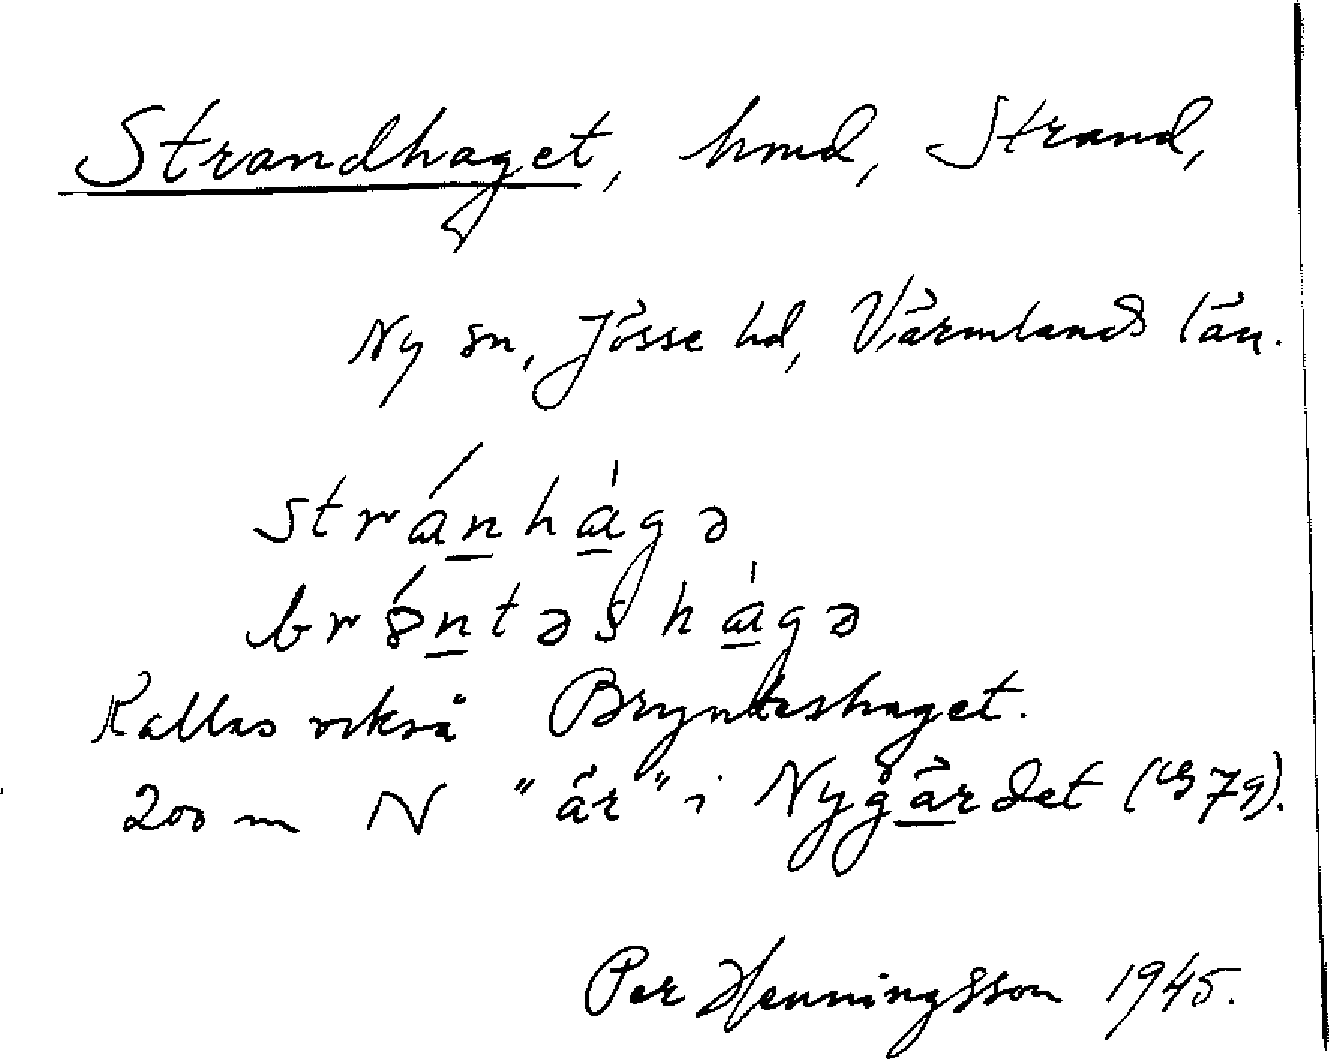 Strandhaget, hmd, Strand,
Ny sn, Jösse hd, Värmlands län.
stránhágə
brǿntəshágə
Kallas också Brynteshaget.
200 m N "är" i Nygärdet (G79).
Per Henningsson 1945.